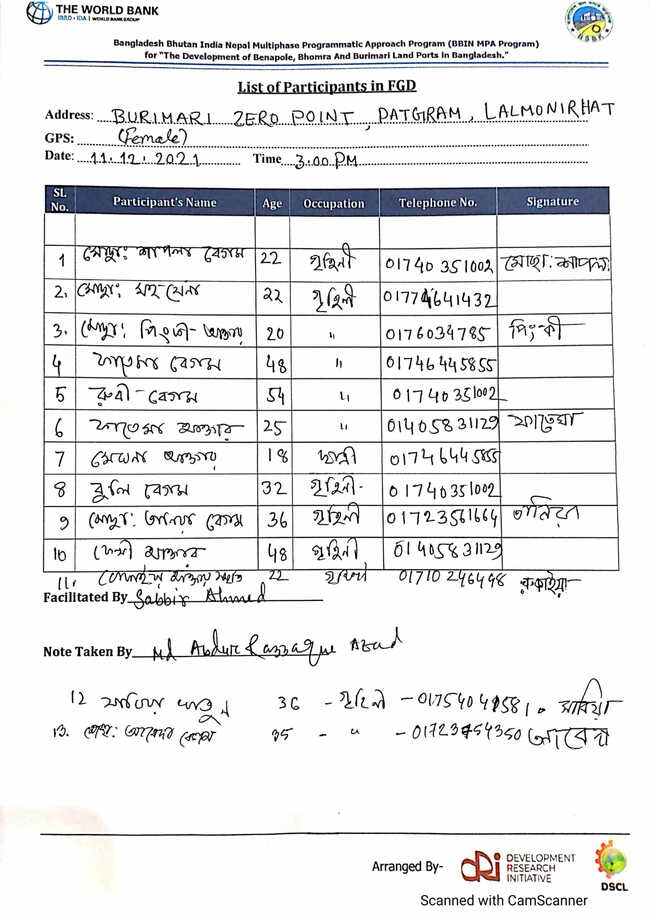 THE WORLD BANK
IBRD • IDA | WORLD BANK GROUP
Bangladesh Bhutan India Nepal Multiphase Programmatic Approach Program (BBIN MPA Program)
for "The Development of Benapole, Bhomra And Burimari Land Ports in Bangladesh."
List of Participants in FGD
Address: BURIMARI ZERO POINT, PATGRAM, LALMONIRHAT
GPS: (Female)
Date: 11.12.2021 Time 3.00 PM
Sl. No. Participant's Name Age Occupation Telephone No. Signature
1 মোছাঃ শাপলা বেগম 22 গৃহিনী 01740351002 মোছাঃ শাপলা
2. মোছাঃ 22 গৃহিনী 01774641432
3. মোছাঃ পিংকী 20 " 0176034785 পিংকী
4 ফাতেমা বেগম 48 " 01746445855
5 রুবী বেগম 54 " 01740351002
6 ফাতেমা আক্তার 25 " 01405831129 ফাতেমা
7 আক্তার 18 ছাত্রী 01746445855
8 বুলি বেগম 32 গৃহিনী 01740351002
9 মোছাঃ বেগম 36 গৃহিনী 01723561664
10 আক্তার 48 গৃহিনী 01405831129
11. 22 01710246448 রুকাইয়া
Facilitated By Sabbir Ahmed
Note Taken By Md Abdur Razzaque Azad
12 36 - গৃহিনী -
13. বেগম 35 - " -
Arranged By- DRI DEVELOPMENT
RESEARCH
INITIATIVE
DSCL
Scanned with CamScanner